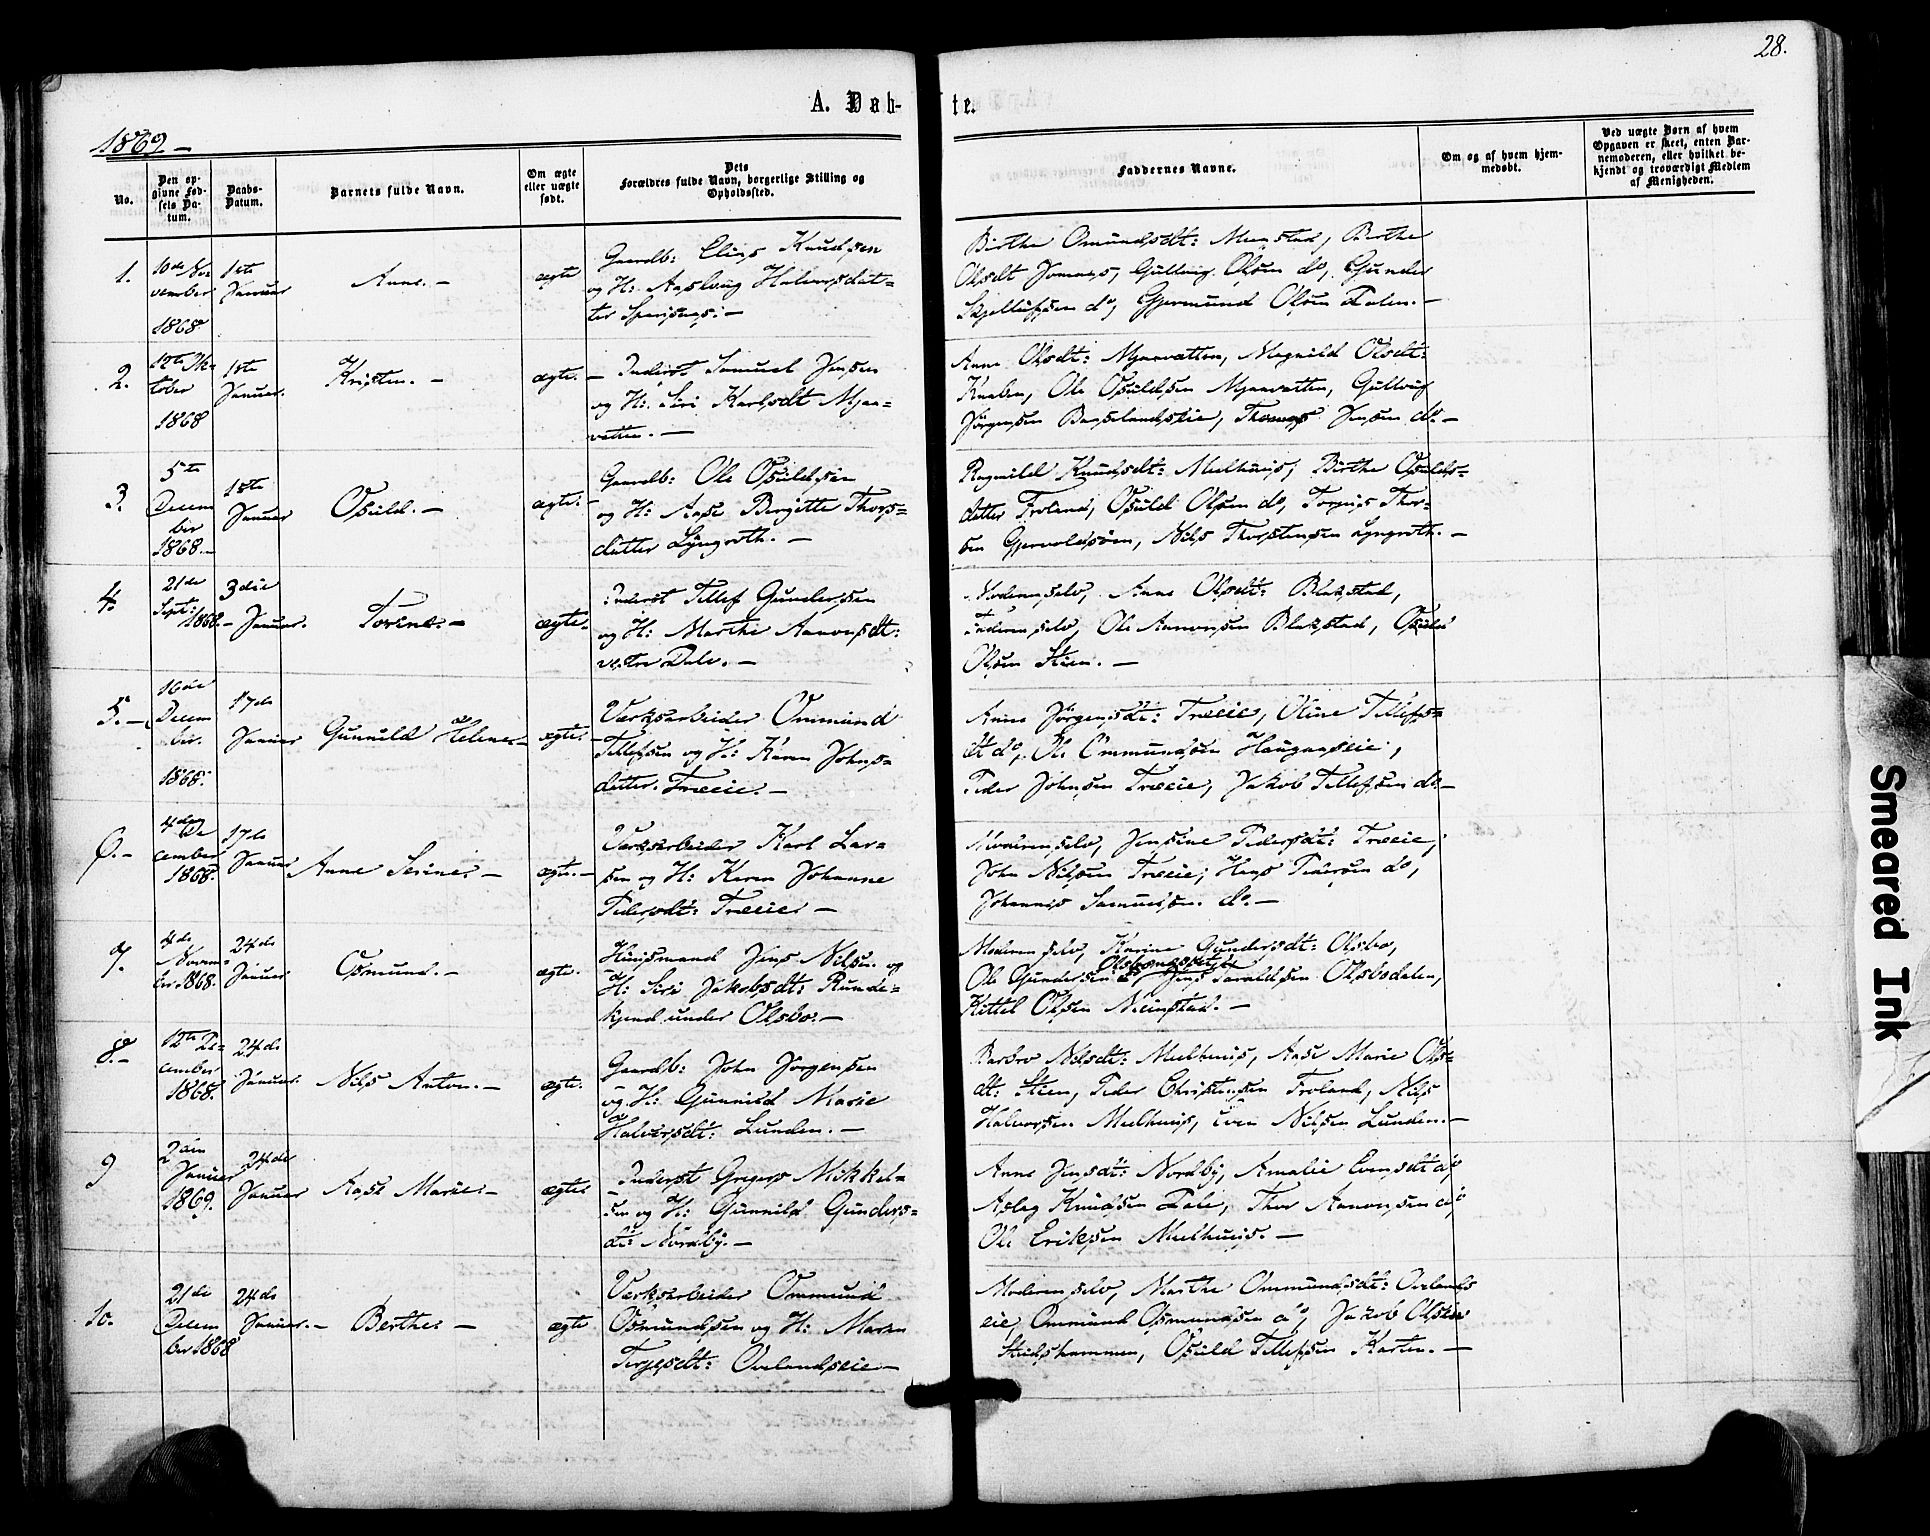 28.
A. Døb-
te.
1869 –
No.
Den op-
givne Fød-
sels Da-
tum.
Daabs-
Datum.
Barnets fulde Navn.
Om ægte
eller uægte
født.
Dets
Forældres fulde Navn, borgerlige Stilling og
Opholdssted.
Faddernes Navne.
Om og af hvem hjem-
medøbt.
Ved uægte Børn af hvem
Opgaven er skeet, enten Bar-
nemoderen, eller hvilket be-
kjendt og troværdigt Medlem
af Menigheden.
1.
10de No-
vember
1868
1ste
Januar
Anne. –
ægte
Gaardb: Elias Knudsen
og H: Aaslaug Halvorsdat-
ter
Birthe Omundsdt: Birthe
Olsdt Gulleig Olsen do, Gunder
do, Gjermund Olsen Dalen. –
2.
12te Ok-
tober
1868
1ste
Januar.
Kristen. –
ægte. –
Inderst Samuel Jensen
og H: Siri Karlsdt Mjaa-
vatten. –
Anne Olsdt: Mjaavatten, Magnild Olsdt:
Knaben, Ole Osuldsen Mjaavatten, Gullvig
Jørgensen Thomas Jensen do –
3.
5te
Decem
ber
1868. –
1ste
Januar
Osuld. –
ægte. –
Gaardb: Ole Osuldsen
og H: Aase Bergitte Thors-
datter Lyngroth. –
Ragnild Knudsdt: Mælhuus, Birthe Osulds-
datter Froland, Osuld Olsen do, Torgius Thor-
sen Nils Thorstensen Lyngroth. –
4.
21de
Sept:
1868. –
3die
Januar.
Torine. –
ægte. –
Inderst Tellef Gundersen
og H: Marthe Aanonsdt:
vestre Dale. –
Moderen selv, Anne Olsdt: Blakstad,
Faderen selv, Ole Aanonsen Blakstad, Osuld
Olsen Stien. –
5. –
16de
Decem
ber.
1868.
17de
Januar
Gunnild Helene –
ægte. –
Værksarbeider Ommund
Tellefsen og H: Karen Johns-
datter. Træeie. –
Anne Jørgensdt: Træeie, Oline Tellefs-
dt do, Ole Ommundsen Hauganseie,
Peder Johnsen Træeie, Jakob Tellefsen do –
6. –
4de De
cember
1868.
17de
Januar
Anne Serine –
ægte. –
Værksarbeider Karl Lar-
sen og H: Karen Johanne
Pedersdt: Træeie –
Moderen selv, Jensine Pedersdt: Træeie,
John Nilsen Træeie, Hans Pedersen do,
Johannes Samuelsen do –
7.
4de
Novem-
ber 1868.
24de
Januar
Osmund. –
ægte.
Huusmand Jens Nilsen og
H: Siri Jakobsdt: Runde-
kjend under Olsbo. –
Moderen selv, Karine Gundersdt: Olsbo,
Ole Gundersen Jens Taraldsen Olsbodalen,
Kittel Olsen –
8. –
12te De-
cember
1868.
24de
Januar.
Nils Anton. –
ægte.
Gaardb: John Jørgensen
og H: Gunnild Marie
Halvorsdt: Lunden. –
Barbro Nilsdt: Mælhuus, Aase Marie Ols-
dt: Stien, Peder Christensen Froland, Nils
Halvorsen Mælhuus, Even Nilsen Lunden. –
9
2den
Januar
1869.
24de
Januar
Aase Marie –
ægte
Inderst Gregers Mikkel-
sen og H: Gunnild Gunders-
dt: Nordby. –
Anne Jensdt: Nordby, Amalie Evensdt do
Aslag Knudsen Dale, Thor Aanonsen do,
Ole Eriksen Mælhuus. –
10.
21de
Decem
ber 1868
24de
Januar. –
Berthe –
ægte
Værksarbeider Ommund
Osmundsen og H: Maren
Terjesdt: Ovelandseie –
Moderen selv, Marthe Ommundsdt: Ovelands
eie, Ommund Osmundsen do, Jakob Olsen
Osuld Tellefsen –
Smeared Ink